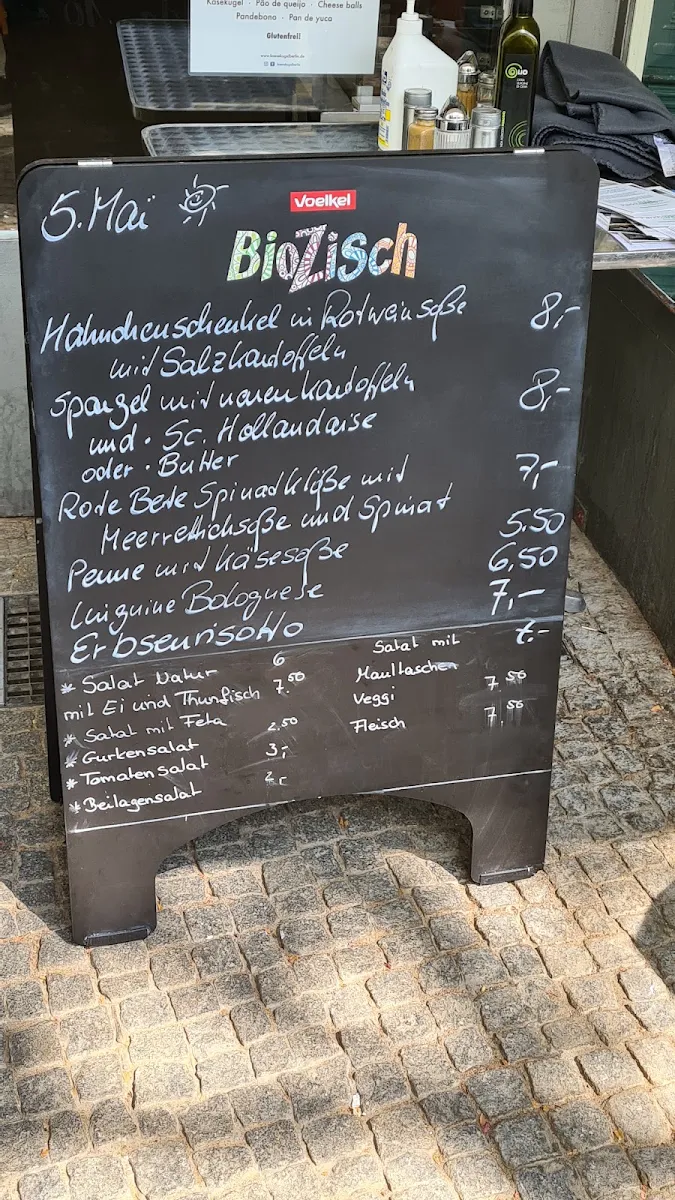 Käsekugel · Pão de queijo · Cheese balls
Pandebono · Pan de yuca
Glutenfrei!
OLIO
5. Mai
Voelkel
BioZisch
Hähnchenschenkel in Rotweinsoße 8,-
mit Salzkartoffeln
Spargel mit neuen Kartoffeln 8,-
und · Sc. Hollandaise
oder · Butter
Rote Bete Spinatklöße mit 7,-
Meerrettichsoße und Spinat
Penne mit Käsesoße 5.50
Linguine Bolognese 6,50
Erbsenrisotto 7,-
* Salat Natur 6
mit Ei und Thunfisch 7.50
* Salat mit Feta
* Gurkensalat 2,50
* Tomatensalat 3,-
* Beilagensalat
Salat mit 7.-
Maultaschen
Veggi 7.50
Fleisch 7.50